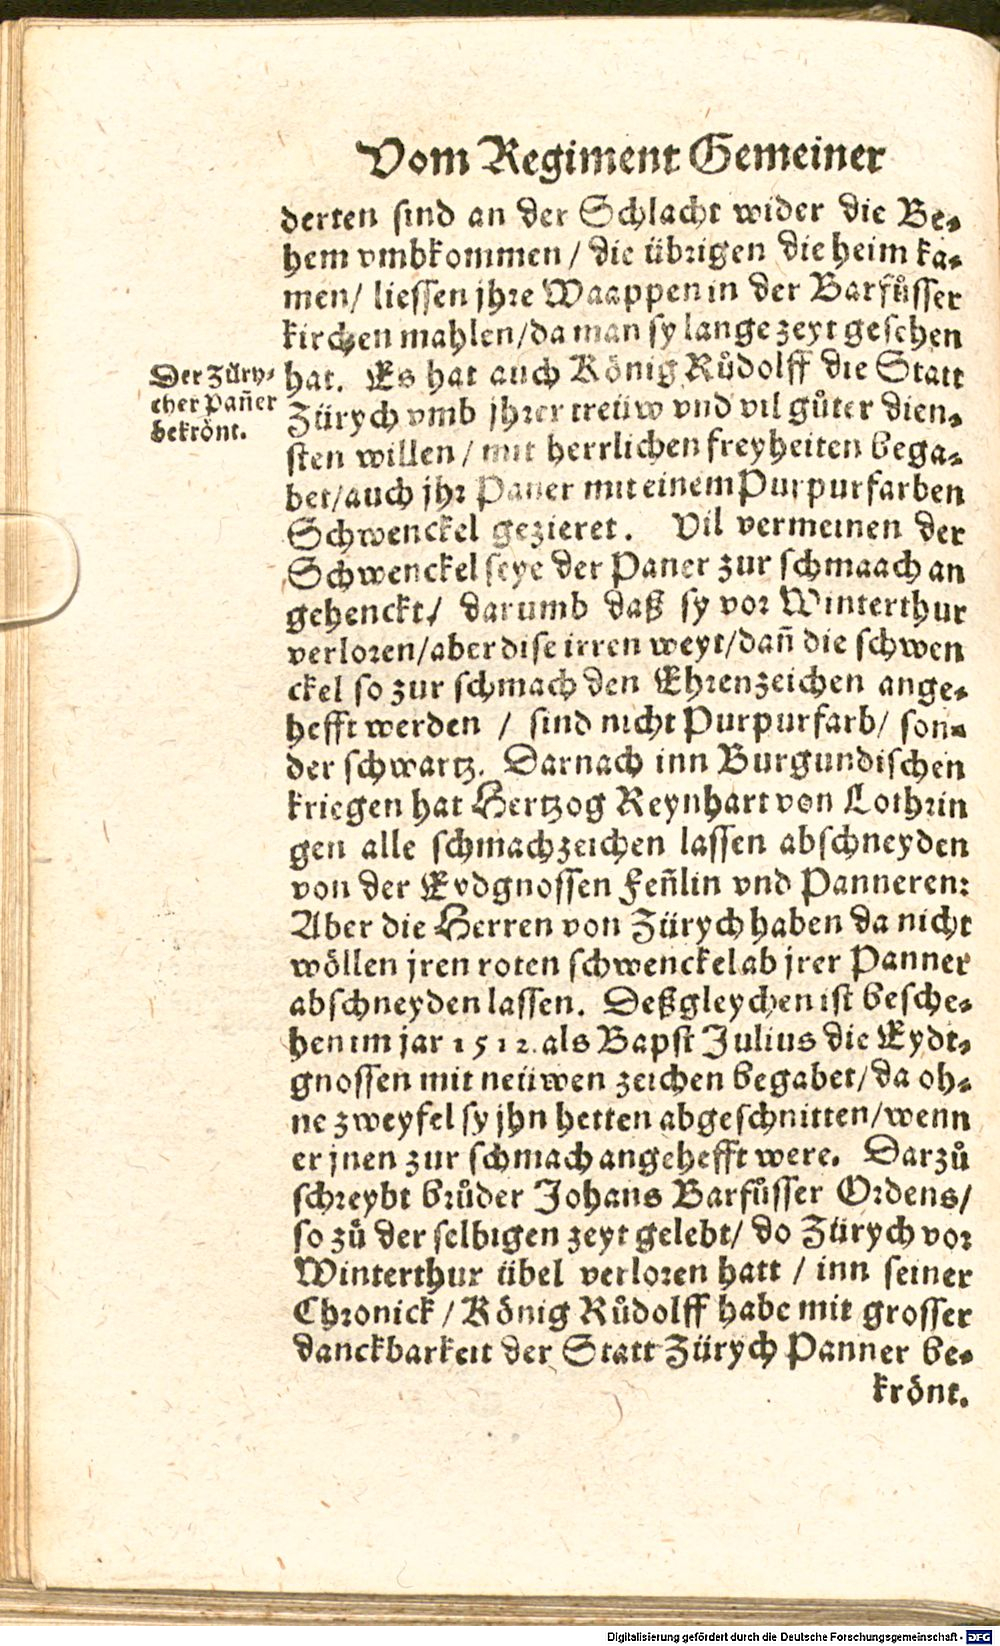 Vom Regiment Gemeiner
derten sind an der Schlacht wider die Be-
hem vmbkommen / die übrigen die heim ka-
men / liessen jhre Waappen in der Barfůsser
kirchen mahlen / da man sy lange zeyt gesehen
hat. Es hat auch König Růdolff die Statt
Zürych vmb jhrer treüw vnd vil gůter dien-
sten willen / mit herrlichen freyheiten bega-
bet / auch jhr Paner mit einem Purpurfarben
Schwenckel gezieret. Vil vermeinen der
Schwenckel seye der Paner zur schmaach an
gehenckt / darumb daß sy vor Winterthur
verloren / aber dise irren weyt / dañ die schwen
ckel so zur schmach den Ehrenzeichen ange-
hefft werden / sind nicht Purpurfarb / son-
der schwartz. Darnach inn Burgundischen
kriegen hat Hertzog Reynhart von Lothrin
gen alle schmachzeichen lassen abschneyden
von der Eydgnossen Feñlin vnd Panneren:
Aber die Herren von Zürych haben da nicht
wöllen jren roten schwenckel ab jrer Panner
abschneyden lassen. Deßgleychen ist besche-
hen im jar 1512. als Bapst Julius die Eydt-
gnossen mit neüwen zeichen begabet / da oh-
ne zweyfel sy jhn hetten abgeschnitten / wenn
er jnen zur schmach angehefft were. Darzů
schreybt brůder Johans Barfůsser Ordens /
so zů der selbigen zeyt gelebt / do Zürych vor
Winterthur übel verloren hatt / inn seiner
Chronick / König Růdolff habe mit grosser
danckbarkeit der Statt Zürych Panner be-
krönt.
Der Züry-
cher Pañer
bekrönt.
Digitalisierung gefördert durch die Deutsche Forschungsgemeinschaft - DFG